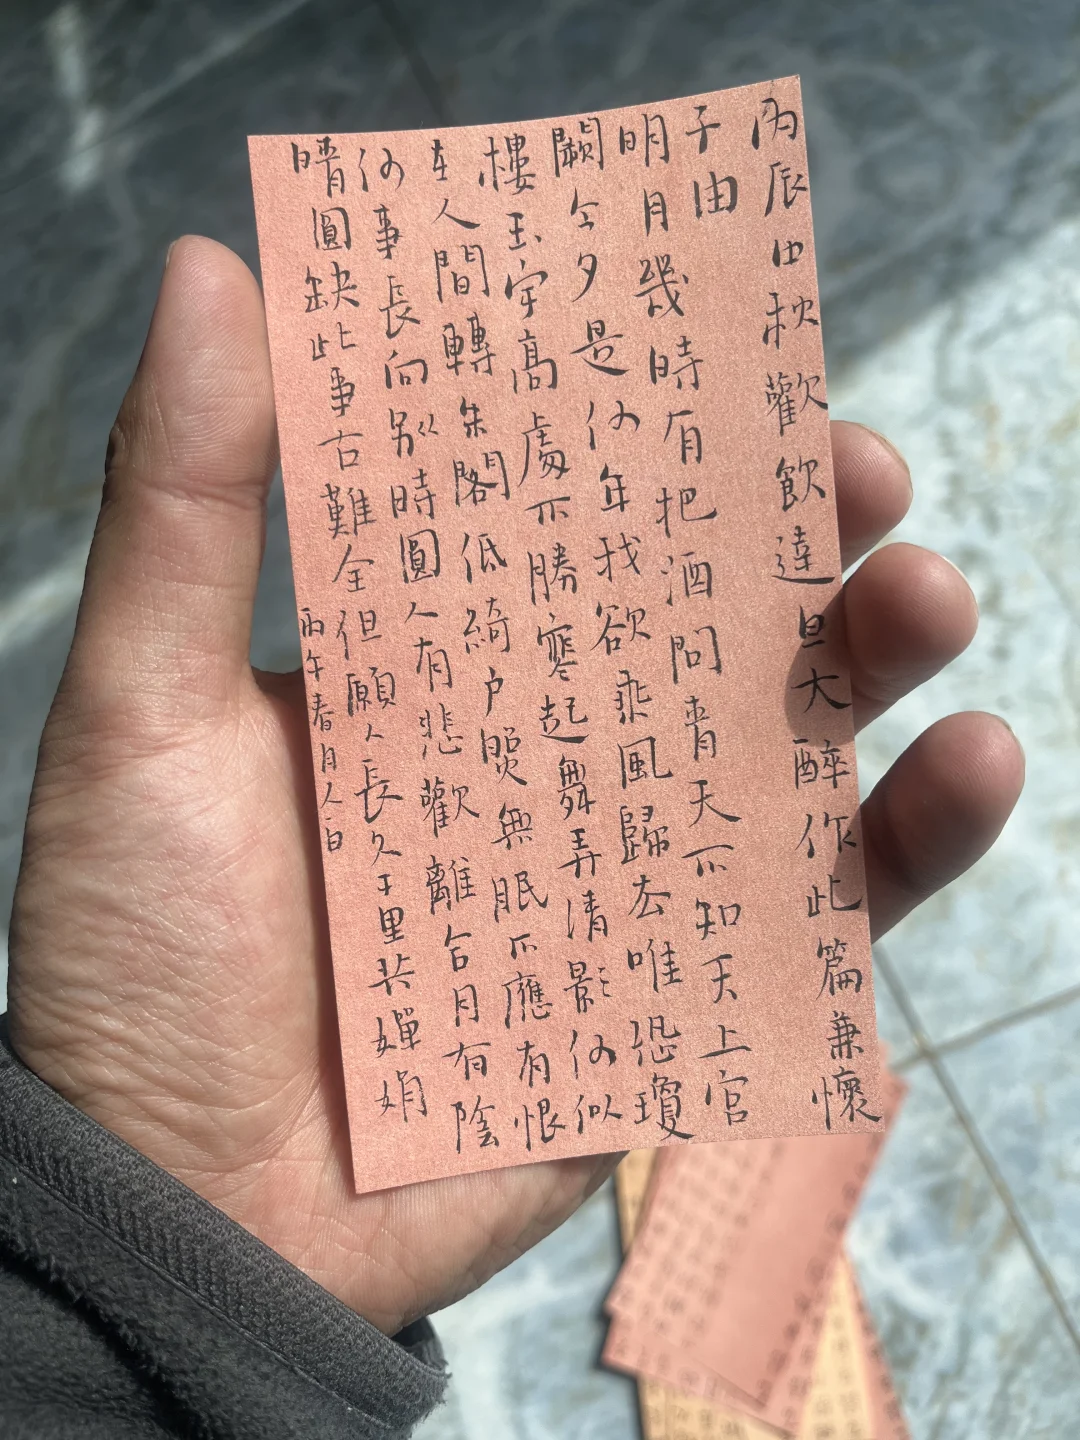 丙辰中秋歡飲達旦大醉作此篇兼懷
子由
明月幾時有把酒問青天不知天上宮
闕今夕是何年我欲乘風歸去唯恐瓊
樓玉宇高處不勝寒起舞弄清影何似
在人間轉朱閣低綺戶照無眠不應有恨
何事長向別時圓人有悲歡離合月有陰
晴圓缺此事古難全但願人長久千里共嬋娟
丙午春月人